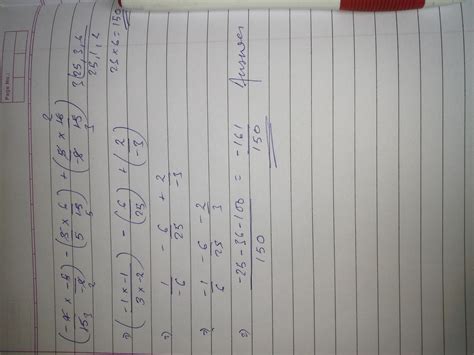 Page No.:
(-4/15 × -8) - (3/5 × 6/15) + (5/8 × 16/15)
3 | 25, 3, 6
25, 1, 2
25 × 6 = 150
⇒ (-1 × -1 / 3 × -2) - (6/25) + (2/-3)
⇒ 1/-6 - 6/25 + 2/-3
⇒ -1/6 - 6/25 - 2/3
⇒ -25 - 36 - 100 / 150 = -161/150 Answer